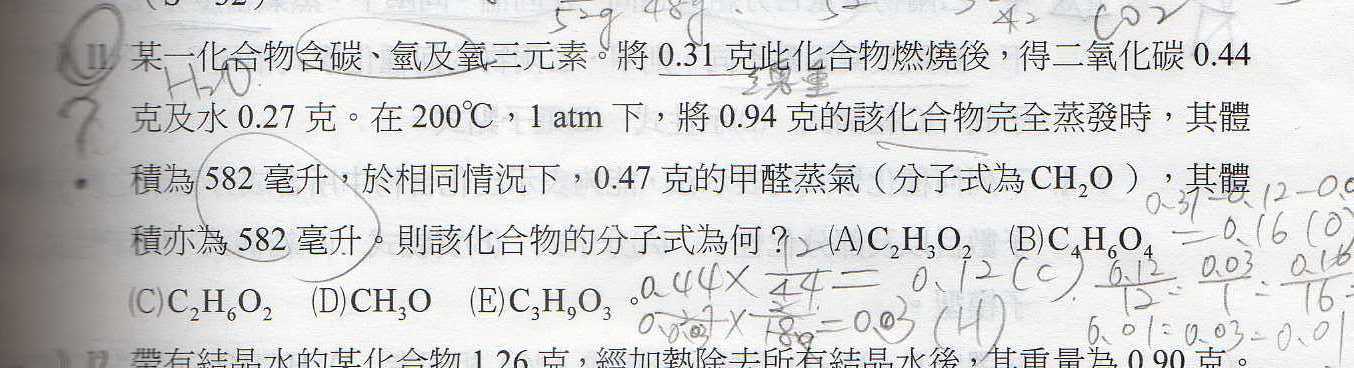 11. 某一化合物含碳、氫及氧三元素。將 0.31 克此化合物燃燒後，得二氧化碳 0.44
H₂O
總重
克及水 0.27 克。在 200℃，1 atm 下，將 0.94 克的該化合物完全蒸發時，其體
?
積為 582 毫升，於相同情況下，0.47 克的甲醛蒸氣（分子式為 CH₂O），其體
0.31-0.12-0.0
積亦為 582 毫升。則該化合物的分子式為何？ (A)C₂H₃O₂ (B)C₄H₆O₄
=0.16(O)
(C)C₂H₆O₂ (D)CH₃O (E)C₃H₉O₃。
0.44×12/44=0.12(C)
0.12/12:0.03/1:0.16/16=
=0.03(H)
0.01:0.03:0.01
12. 帶有結晶水的某化合物 1.26 克，經加熱除去所有結晶水後，其重量為 0.90 克。